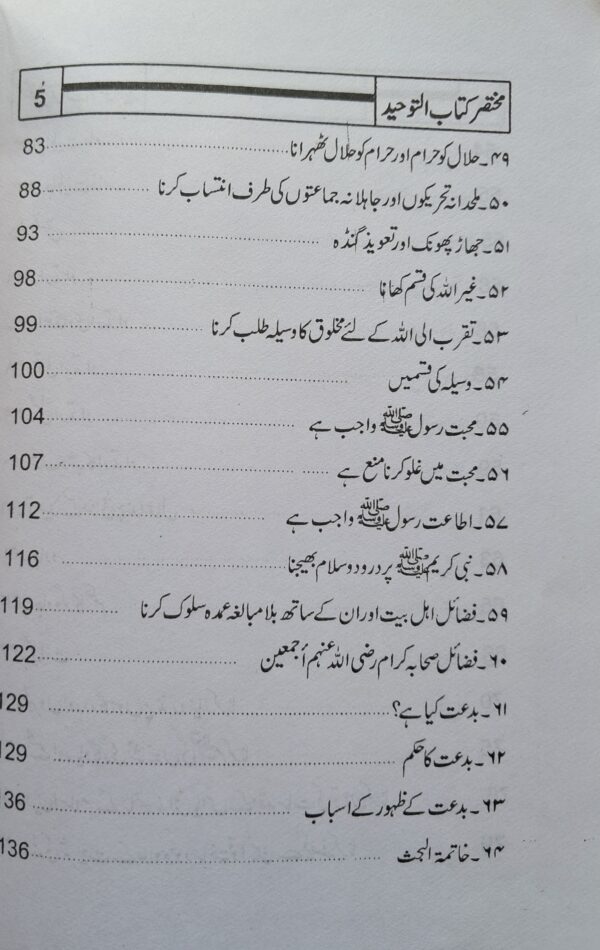 مختصر کتاب التوحید 5
۴۹۔ حلال کو حرام اور حرام کو حلال ٹھہرانا 83
۵۰۔ ملحدانہ تحریکوں اور جاہلانہ جماعتوں کی طرف انتساب کرنا 88
۵۱۔ جھاڑ پھونک اور تعویذ گنڈہ 93
۵۲۔ غیر اللہ کی قسم کھانا 98
۵۳۔ تقرب الی اللہ کے لئے مخلوق کا وسیلہ طلب کرنا 99
۵۴۔ وسیلہ کی قسمیں 100
۵۵۔ محبت رسول ﷺ واجب ہے 104
۵۶۔ محبت میں غلو کرنا منع ہے 107
۵۷۔ اطاعت رسول ﷺ واجب ہے 112
۵۸۔ نبی کریم ﷺ پر درود وسلام بھیجنا 116
۵۹۔ فضائل اہل بیت اور ان کے ساتھ بلا مبالغہ عمدہ سلوک کرنا 119
۶۰۔ فضائل صحابہ کرام رضی اللہ عنہم أجمعین 122
۶۱۔ بدعت کیا ہے؟ 129
۶۲۔ بدعت کا حکم 129
۶۳۔ بدعت کے ظہور کے اسباب 136
۶۴۔ خاتمۃ البحث 136